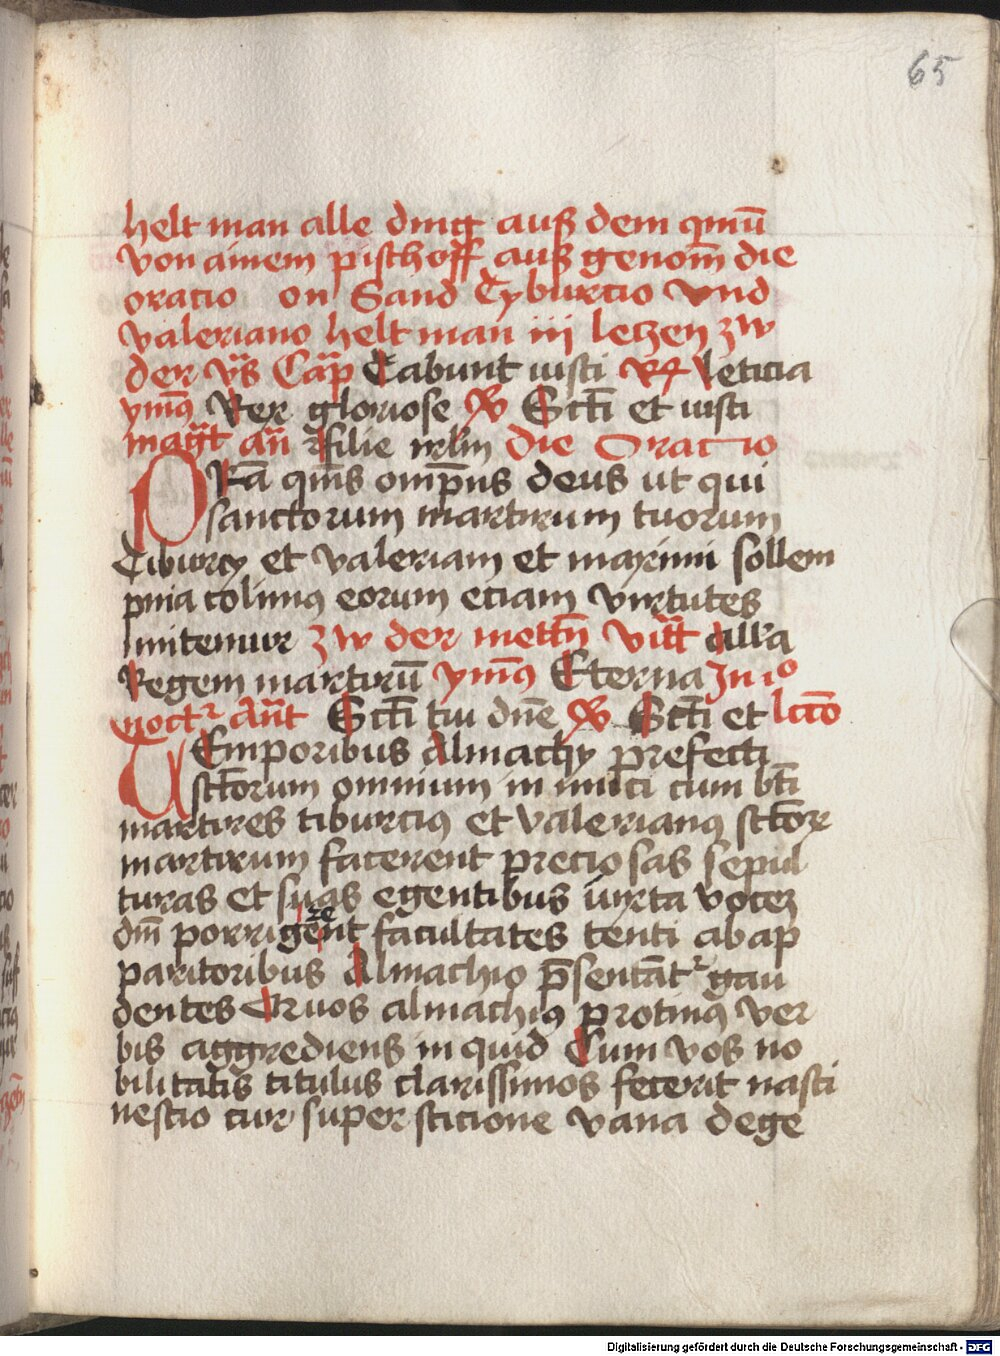 65
helt man alle ding auß dem qmū
von ainem pischoff auß genom̄ die
oracio on Sand Tyburcio vnd
valeriano helt man iii letzen zw
der vs̄ Cap̄ Stabunt iusti R Leticia
ymꝰ Rex gloriose V Scti et iusti
mag̅t an̄ Filie irlm̄ die Oracio
PRā qms omp̄ns deus ut qui
sanctorum martirum tuorum
Tiburcy et valeriani et maximi sollem
pnia colimꝰ eorum eciam virtutes
imitemur zw der mettn̄ vitt̄ alla
Regem martirū ymꝰ Eterna In io
noct̄ Ant̄ Scti tui dn̄e V Scti et lcc̄o
TEmporibus Almachy prefecti
sctorum omnium in imici cum bt̄i
martires tiburciꝰ et valerianꝰ sctorꝝ
martirum facerent preciosas sepul
turas et suas egentibus iuxta vocem
dn̄i porrigerent facultates tenti ab ap
paritoribus Almachio p̄sentāt gau
dentes Quos almachiꝰ protinꝰ ver
bis aggrediens inquid Cum vos no
bilitatis titulus clarissimos fecerit nasci
nescio cur super sticione vana dege
Digitalisierung gefördert durch die Deutsche Forschungsgemeinschaft - DFG